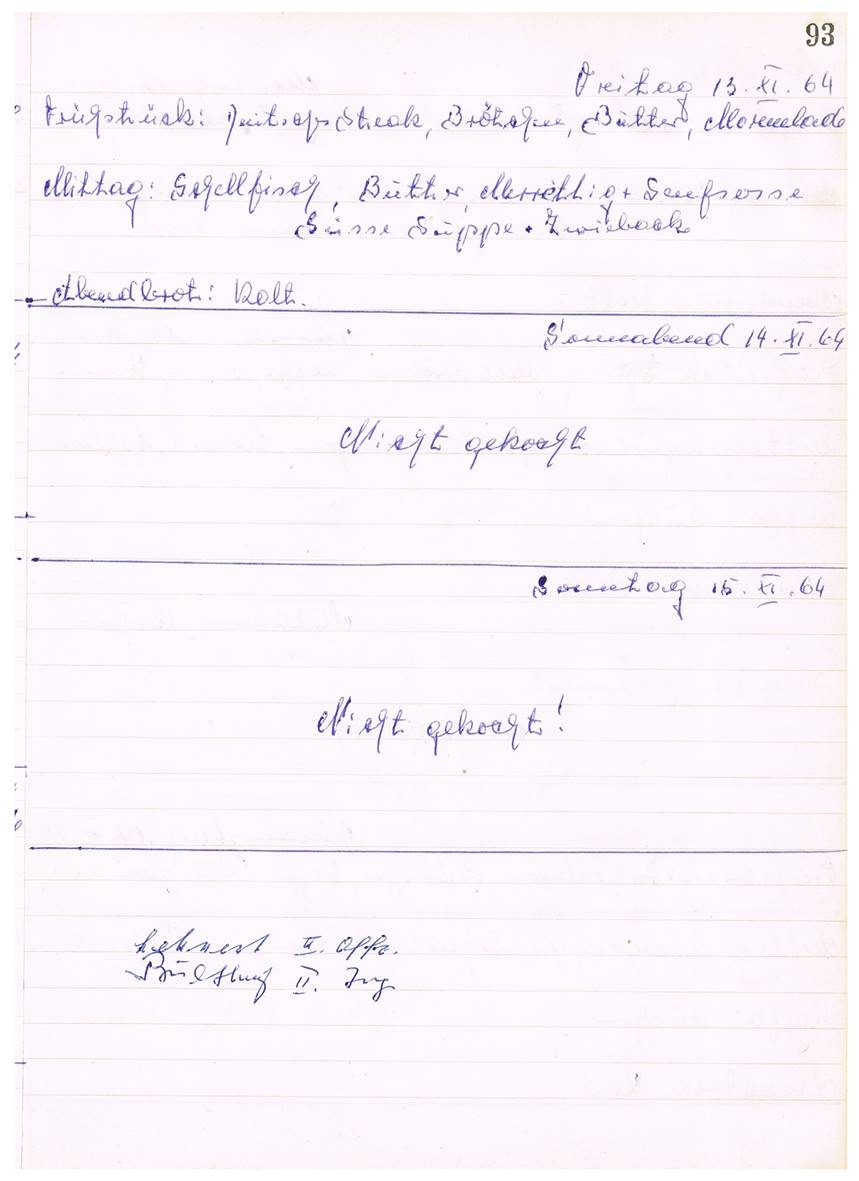 93
Freitag 13. XI. 64
Frühstück: Deutsches Steak, Brötchen, Butter, Marmelade
Mittag: Schellfisch, Butter, Merrettig + Senfsosse
Süsse Suppe + Zwieback
Abendbrot: Kalt.
Sonnabend 14. XI. 64
Nicht gekocht
Sonntag 15. XI. 64
Nicht gekocht!
II. Offz.
II. Ing